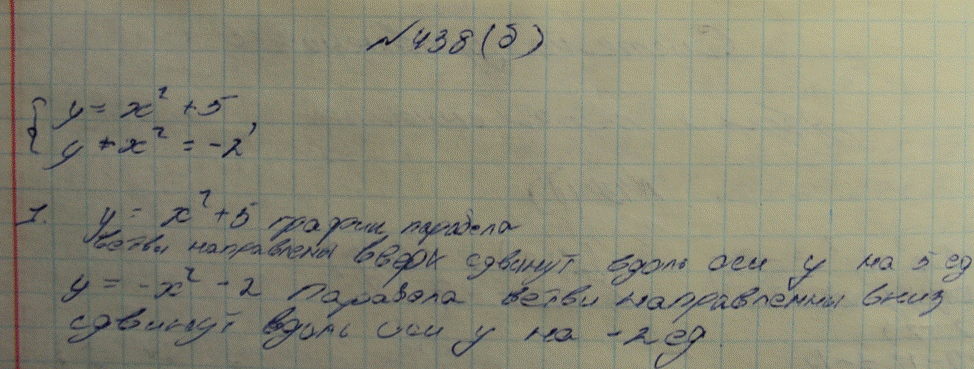 №438(б)
{ y = x² + 5
y + x² = -2,
1. y = x² + 5 график парабола
ветви направлены вверх сдвинут вдоль оси y на 5 ед
y = -x² - 2 парабола ветви направленны вниз
сдвинут вдоль оси y на -2 ед